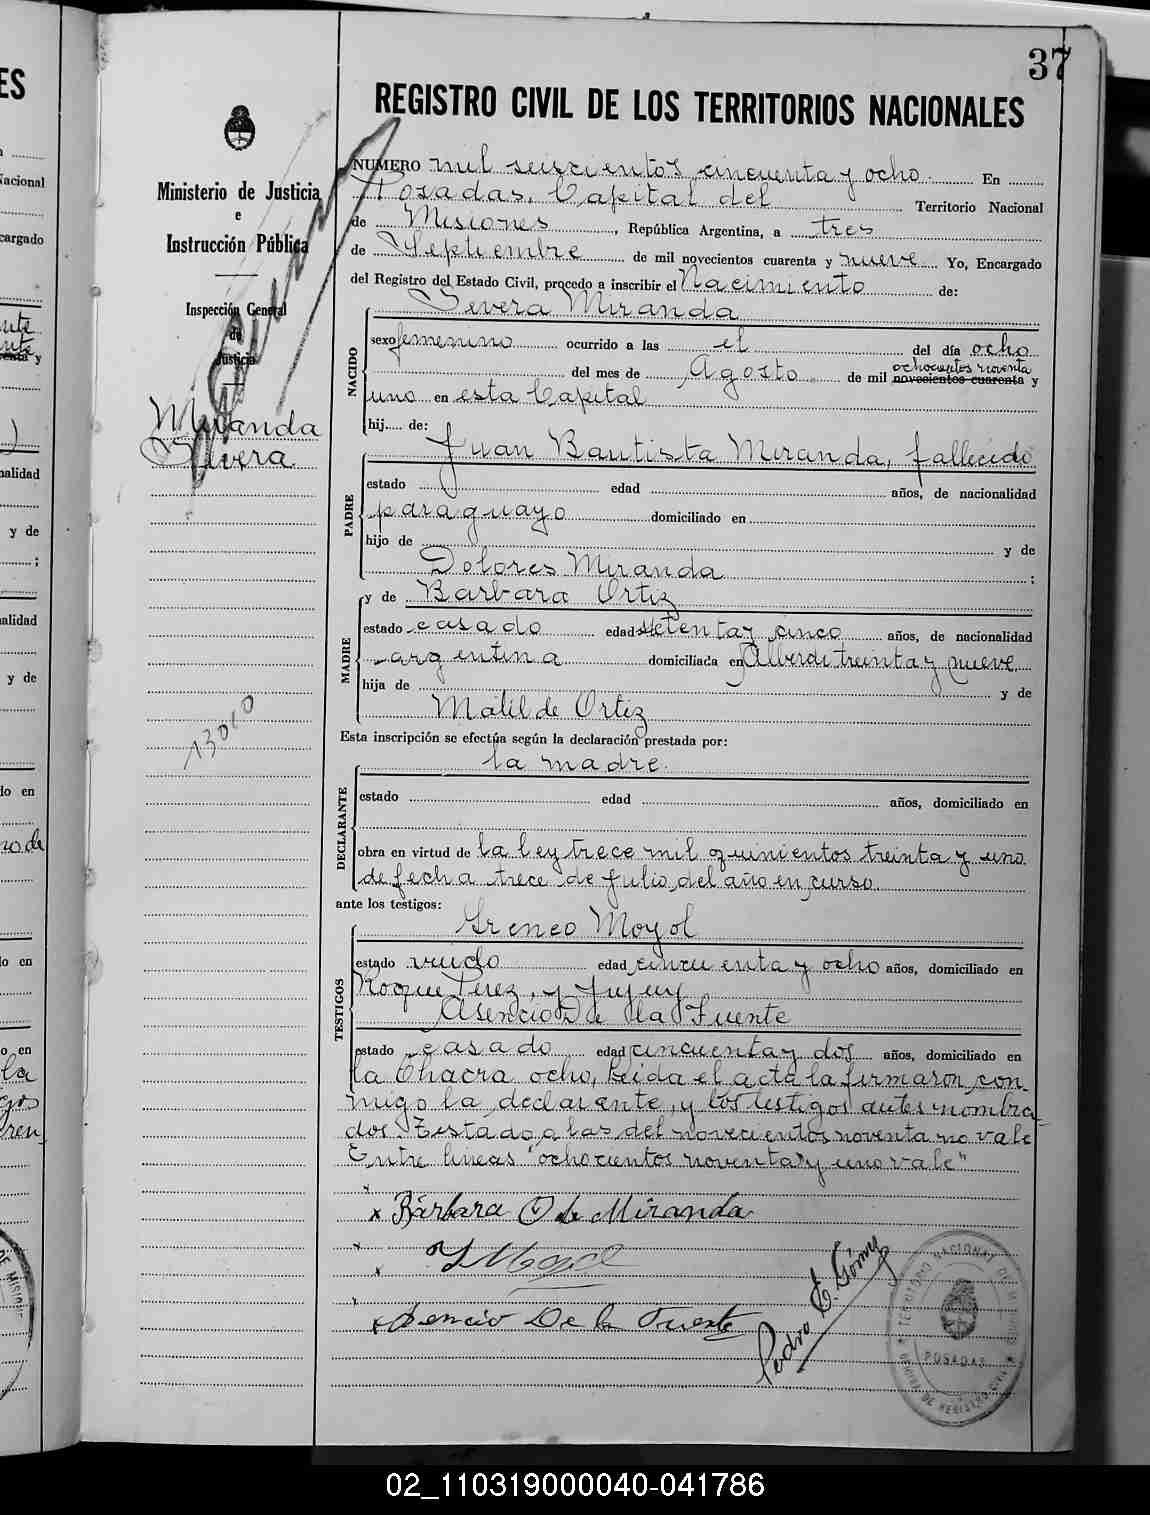 37
REGISTRO CIVIL DE LOS TERRITORIOS NACIONALES
Ministerio de Justicia
e
Instrucción Pública
Inspección General
de
Justicia
Miranda
Severa
13010
NUMERO mil seiscientos cincuenta y ocho. En
Posadas, Capital del Territorio Nacional
de Misiones, República Argentina, a tres
de Septiembre de mil novecientos cuarenta y nueve Yo, Encargado
del Registro del Estado Civil, procedo a inscribir el Nacimiento de:
NACIDO
Severa Miranda
sexo femenino ocurrido a las el del día ocho
ochocientos noventa
del mes de Agosto de mil novecientos cuarenta y
uno en esta Capital
hij..... de:
PADRE
Juan Bautista Miranda, fallecido
estado edad años, de nacionalidad
paraguayo domiciliado en
hijo de y de
Dolores Miranda ;
MADRE
y de Barbara Ortiz
estado casado edad setenta y cinco años, de nacionalidad
argentina domiciliada en Alberdi treinta y nueve
hija de y de
Matilde Ortiz
Esta inscripción se efectúa según la declaración prestada por:
DECLARANTE
la madre.
estado edad años, domiciliado en
obra en virtud de la ley trece mil quinientos treinta y uno
de fecha trece de Julio del año en curso.
ante los testigos:
TESTIGOS
Ireneo Moyol
estado viudo edad cincuenta y ocho años, domiciliado en
Roque Perez, y Jujuy
Asencio De la Fuente
estado casado edad cincuenta y dos años, domiciliado en
la Chacra ocho, Leida el acta la firmaron con-
migo la declarante, y los testigos antes nombra-
dos. Testado, a las, del novecientos noventa no vale
Entre lineas "ochocientos noventa y uno vale"
x Bárbara O de Miranda
x
x Asencio De la Fuente
Pedro E. Gómez
TERRITORIO NACIONAL DE MISIONES
POSADAS
OFICINA DE REGISTRO CIVIL
02_110319000040-041786